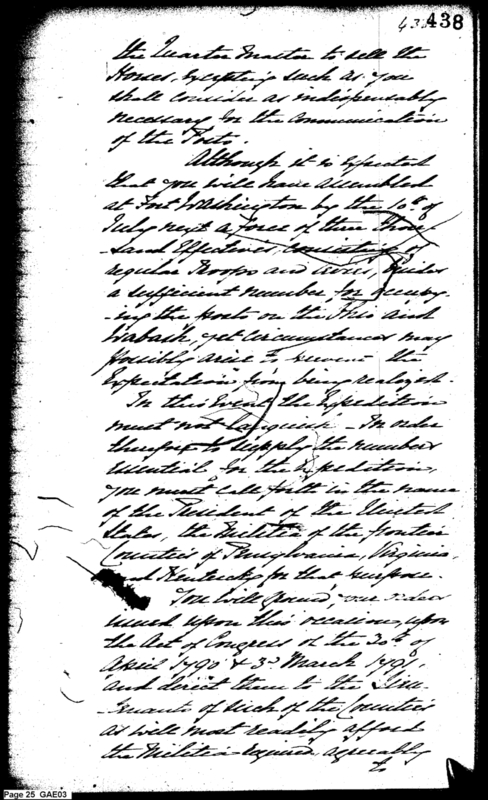 438
the Quarter Master to sell the
Horses, excepting such as you
shall consider as indispensably
necessary for the Communication
of the Posts.
Although it is expected
that you will have assembled
at Fort Washington by the 10th of
July next a force of three thou
-sand Effectives, consisting of
regular Troops and levies, besides
a sufficient number for occupy-
-ing the posts on the Ohio and
Wabash, yet circumstances may
possibly arise to prevent the
Expectation from being realized.
In this Event the Expedition
must not languish - In order
therefore to supply the numbers
essential for the Expedition,
you must call forth in the name
of the President of the United
States, the Militia of the frontier
Counties of Pennsylvania, Virginia,
and Kentucky for that purpose.
You will found, your orders
issued upon this occasion, upon
the Act of Congress of the 30th of
April 1790 & 3d March 1791,
and direct them to the Lieu-
-tenants of such of the Counties
as will most readily afford
the Militia required agreeably
to
Page 25 GAE03